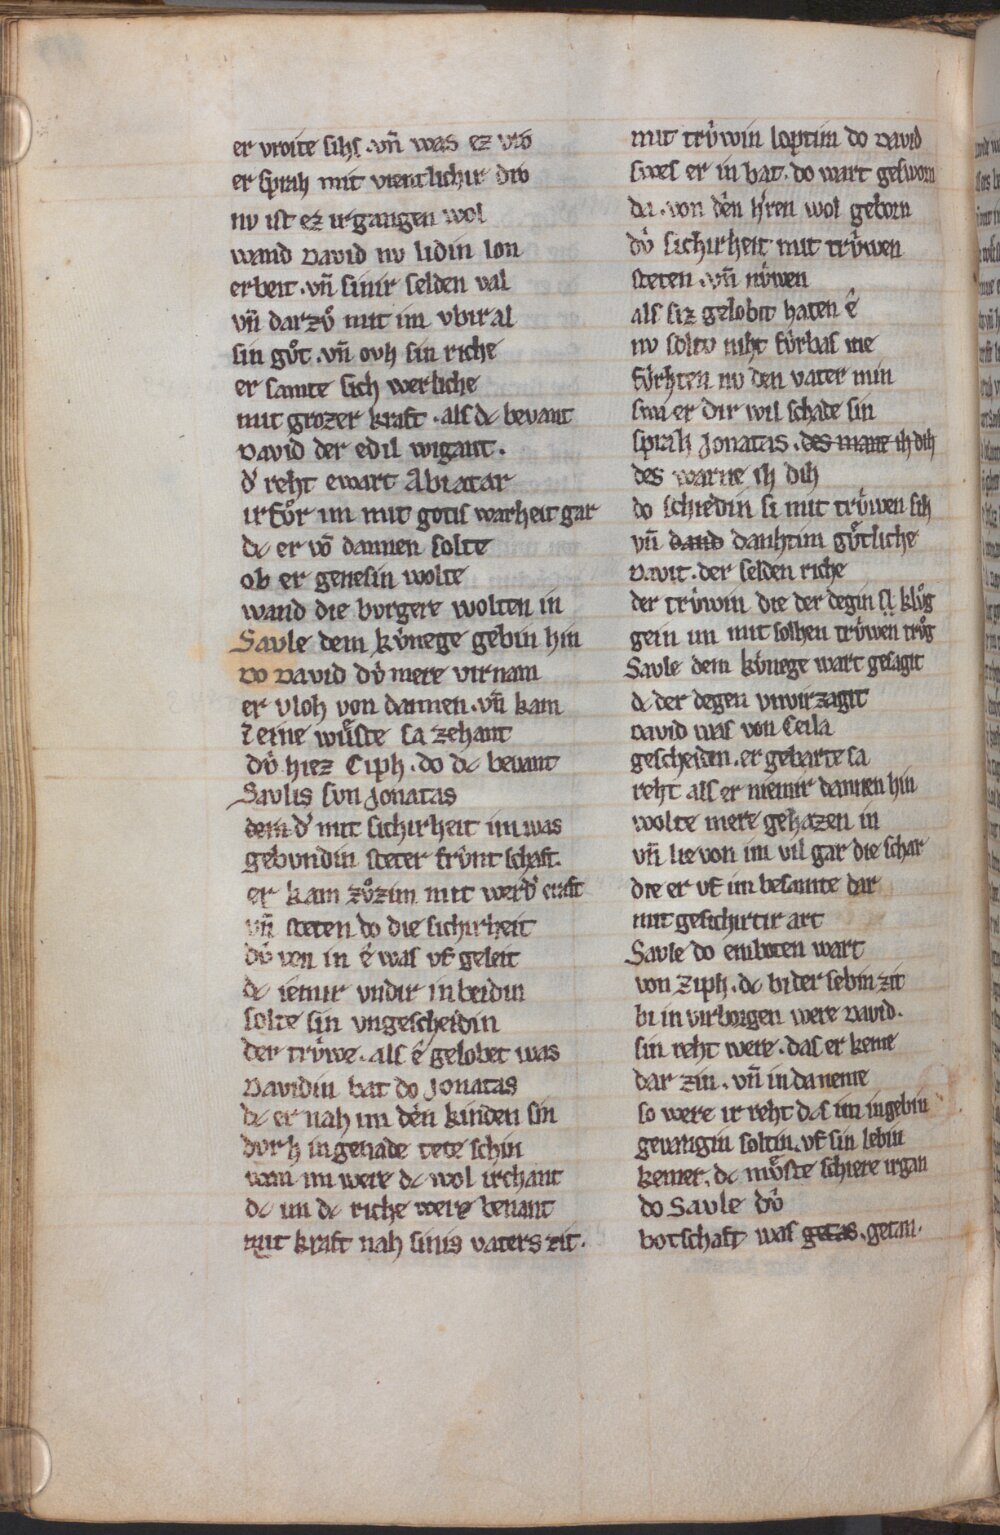 er vroite sihs .vn̄ was ez vro
er sprah mit vientlichir dro
nv ist ez irgangen wol
wand David nv lidin son
erbeit .vn̄ sinir selden val
vn̄ darzvͦ mit im vbir al
sin gvͦt .vn̄ ovh sin riche
er samte sich werliche
mit grozer kraft . als dc bevant
David der edil wigant.
dˀ reht ewart Abiatar
irfvͦr im mit gotis warheit gar
dc er vō dannen solte
ob er genesin wolte
wand die bvrgere wolten in
Savle dem kv́nege gebin hin
Do David dv́ mere virnam
er vloh von dannen .vn̄ kam
ī eine wvͤste sa zehant
dv́ hiez Ciph . do dc bevant
Savlis svn Jonatas
dem dˀ mit sichirheit im was
gebvndin steter frv́nt schaft.
er kam zvͦzim mit werdˀ craft
vn̄ steten do die sichirheit
dv́ von in ê was vf geleit
dc iemir vndir in beidin
solte sin vngescheidin
der trv́we . als ê gelobet was
Davidin bat do Jonatas
dc er nah im den kinden sin
dvrh in genade tete schin
wan im were dc wol irchant
dc im dc riche were benant
mit kraft nah sinis vaters zit.
mit trv́win loptim do David
swes er in bat . do wart gesworn
da . von den hˀren wol geborn
dv́ sichirheit mit trv́wen
steten .vn̄ nv́wen
als siz gelobit haten ê
nv soltv niht fv́rbas me
fv́rhten nv den vater min
swi er dir wil schade sin
sprah Jonatas . des mane ih dih
des warne ih dih
do schiedin si mit trv́wen sih
vn̄ dand danhtim gvͤtliche
Davit . der selden riche
der trv́win die der degin klvͦg
gein im mit solhen trv́wen trvͦg
Savle dem kv́nege wart gesagit
dc der degen vnvirzagit
David was von Ceila
gescheiden . er gebarte sa
reht als er niemir dannen hin
wolte mere gehazen in
vn̄ lie von im vil gar die schar
die er vf im besamte dar
mit gesichirtir art
Savle do enboten wart
von Ziph . dc bi der sebin zit
bi in virborgen were David.
sin reht were . das er keme
dar zin .vn̄ in da neme
so were ir reht das im in gebin
gevangin soltin . vf sin lebin
kemer . dc mvͤste schiere irgan
do Savle dv́
botschaft was getas . getan.